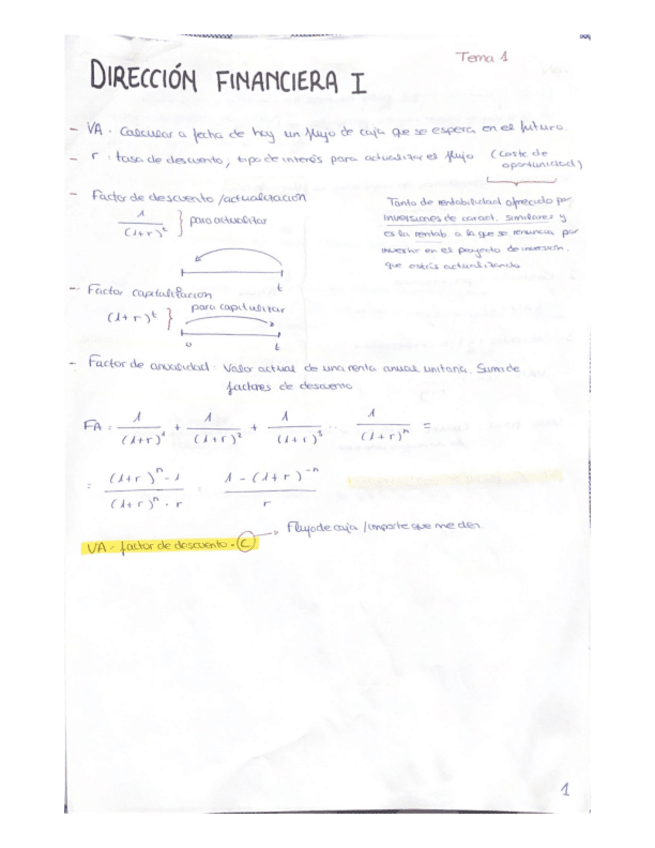 Tema 1
DIRECCIÓN FINANCIERA I
- VA. Calcular a fecha de hoy un flujo de caja que se espera en el futuro.
- r : tasa de descuento, tipo de interés para actualizar el flujo (Coste de
oportunidad)
Tanto de rentabilidad ofrecido por
inversiones de caract. similares y
es la rentab. a la que se renuncia por
invertir en el proyecto de inversión.
que estás actualizando
- Factor de descuento /actualización
1 / (1+r)^t } para actualizar
t
- Factor capitalización
(1+r)^t } para capitalizar
0 t
- Factor de anualidad: Valor actual de una renta anual unitaria. Suma de
factores de descuento
FA = 1/(1+r)^1 + 1/(1+r)^2 + 1/(1+r)^3 ... 1/(1+r)^n =
= ((1+r)^n - 1)/((1+r)^n · r) (1 - (1+r)^-n)/r
→ Flujo de caja /importe que me den.
VA = factor de descuento · C
1